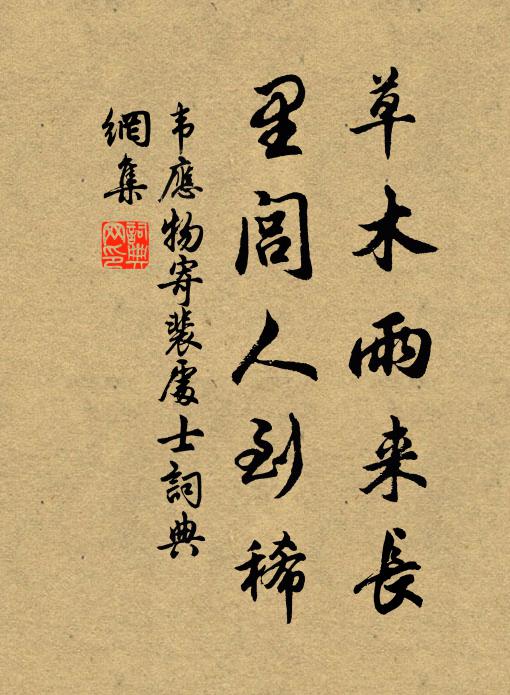 草木雨来長
里閭人到稀
韦應物寄裴處士詞典
網集
詞典
网印